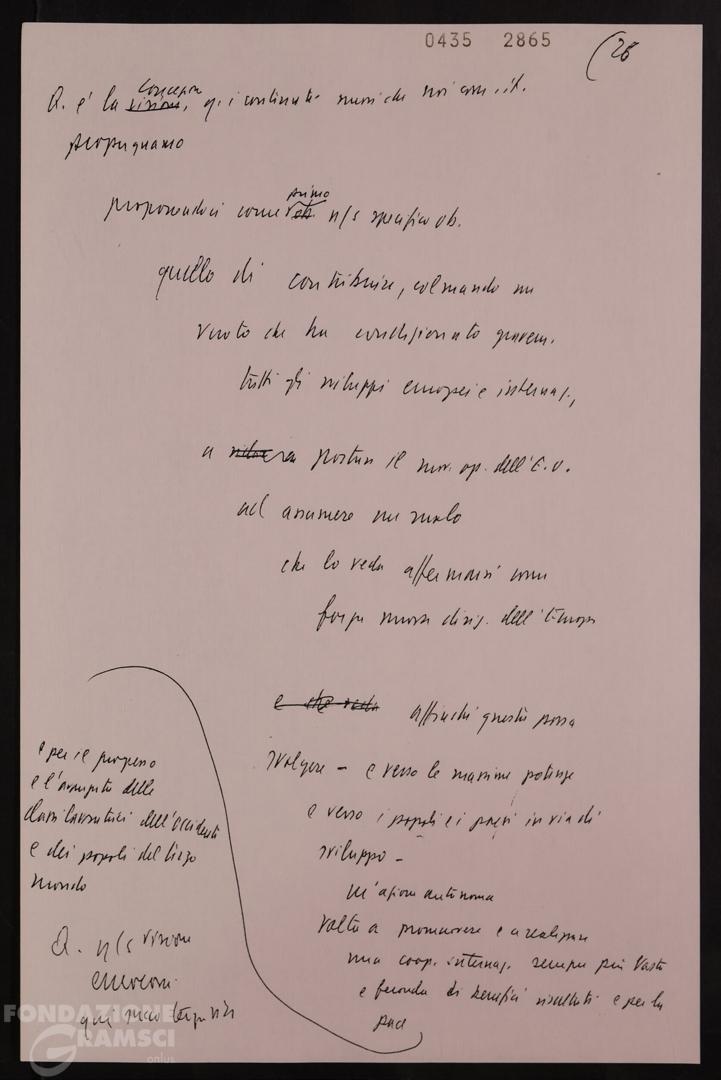 0435 2865
(26
concezione
Q. e' la visione, qui continuo che noi com. it.
propugnamo
primo
proponendoci come n/s specifico ob.
quello di contribuire, colmando un
vuoto che ha condizionato gravem.
tutti gli sviluppi europei e internaz.,
a portare il mov. op. dell'E.O.
ad assumere un ruolo
che lo veda affermarsi come
forza nuova dirig. dell'Europa
e che veda affinché questa possa
svolgere - e verso le massime potenze
e verso i popoli e i paesi in via di
sviluppo -
un'azione autonoma
volta a promuovere e a realizzare
una coop. internaz. sempre più vasta
e feconda di benefici risultati e per la
pace
e per il progresso
e l'avanzata delle
classi lavoratrici dell'occidente
e dei popoli del terzo
mondo
Q. n/s visione
eurocom.
FONDAZIONE
GRAMSCI
onlus